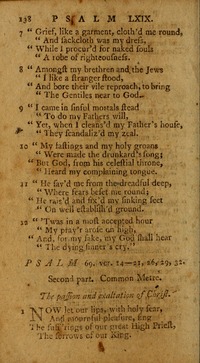 238 PSALM LXIX.
7 "Grief, like a garment, cloth'd me round,
" And sackcloth was my dress,
" While I procur'd for naked souls
" A robe of righteousness.
8 " Amongst my brethren and the Jews
" I like a stranger stood,
" And bore their vile reproach, to bring
" The Gentiles near to God.
9 " I came in sinful mortals stead
" To do my Fathers will,
" Yet, when I cleans'd my Father's house,
" They scandaliz'd my zeal.
10 " My fastings and my holy groans
" Were made the drunkard's song;
" But God, from his celestial throne,
" Heard my complaining tongue.
11 " He sav'd me from the dreadful deep,
" Where fears beset me round;
" He rais'd and fix'd my sinking feet
" On well establish'd ground.
12 " 'Twas in a most accepted hour
" My pray'r arose on high,
" And, for my sake, my God shall hear
" The dying sinner's cry."
PSALM 69. ver. 14—21, 26, 29, 32.
Second part. Common Metre.
The passion and exaltation of Christ.
1 NOW let our lips, with holy fear,
And mournful pleasure, sing
The suff'rings of our great High Priest,
The sorrows of our King.